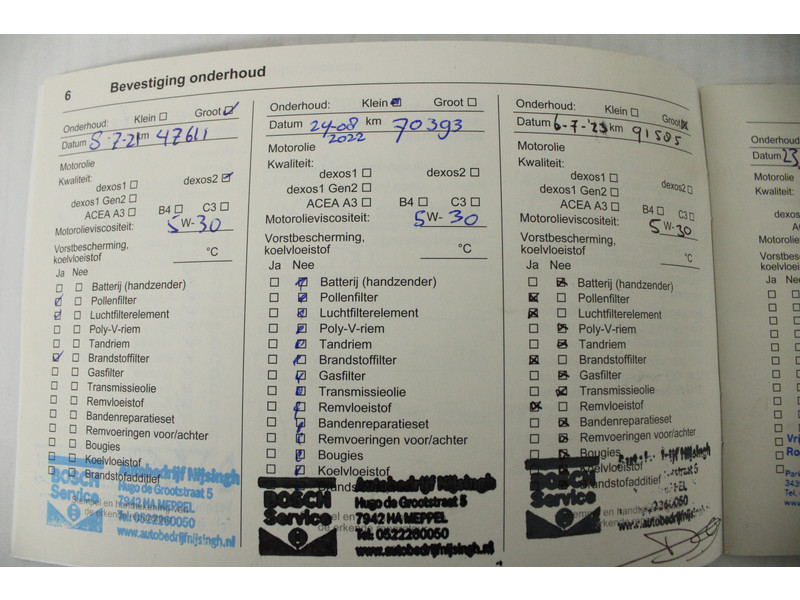 6 Bevestiging onderhoud
Onderhoud: Klein Groot
Datum 8-7-21 km 47611
Motorolie
Kwaliteit:
dexos1 dexos2
dexos1 Gen2
ACEA A3 B4 C3
Motorolieviscositeit: 5 W- 30
Vorstbescherming,
koelvloeistof °C
Ja Nee
Batterij (handzender)
Pollenfilter
Luchtfilterelement
Poly-V-riem
Tandriem
Brandstoffilter
Gasfilter
Transmissieolie
Remvloeistof
Bandenreparatieset
Remvoeringen voor/achter
Bougies
Koelvloeistof
Brandstofadditief
BOSCH Service
Autobedrijf Nijsingh
Hugo de Grootstraat 5
7942 HA MEPPEL
Tel: 0522260050
www.autobedrijfnijsingh.nl
Onderhoud: Klein Groot
Datum 24-08 2022 km 70393
Motorolie
Kwaliteit:
dexos1 dexos2
dexos1 Gen2
ACEA A3 B4 C3
Motorolieviscositeit: 5 W- 30
Vorstbescherming,
koelvloeistof °C
Ja Nee
Batterij (handzender)
Pollenfilter
Luchtfilterelement
Poly-V-riem
Tandriem
Brandstoffilter
Gasfilter
Transmissieolie
Remvloeistof
Bandenreparatieset
Remvoeringen voor/achter
Bougies
Koelvloeistof
BOSCH Service
Autobedrijf Nijsingh
Hugo de Grootstraat 5
7942 HA MEPPEL
Tel: 0522260050
www.autobedrijfnijsingh.nl
Onderhoud: Klein Groot
Datum 6-7-'23 km 91585
Motorolie
Kwaliteit:
dexos1 dexos2
dexos1 Gen2
ACEA A3 B4 C3
Motorolieviscositeit: 5 W- 30
Vorstbescherming,
koelvloeistof °C
Ja Nee
Batterij (handzender)
Pollenfilter
Luchtfilterelement
Poly-V-riem
Tandriem
Brandstoffilter
Gasfilter
Transmissieolie
Remvloeistof
Bandenreparatieset
Remvoeringen voor/achter
Bougies
Koelvloeistof
Brandstofadditief
BOSCH Service
www.autobedrijfnijsingh.nl
Onderhoud
Datum 23
Motorolie
Kwaliteit:
dexos
Motorolie
koelvloeist
Ja Nee